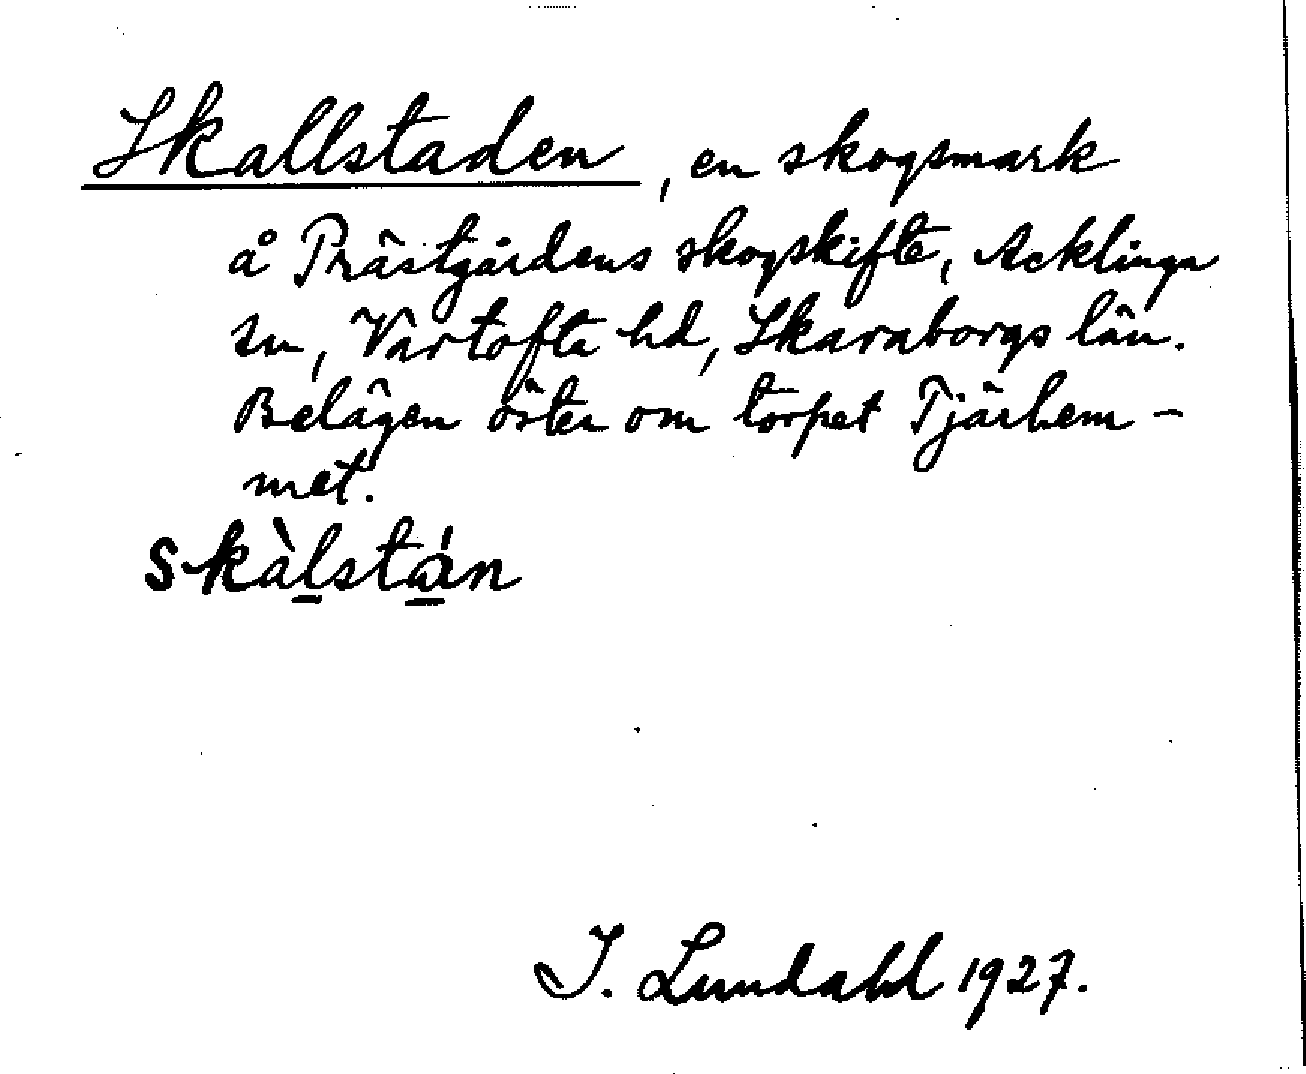 Skallstaden, en skogsmark
å Prästgårdens skogskifte, Acklinga
sn, Vartofta hd, Skaraborgs län.
Belägen öster om torpet Tjärhem-
met.
Skàlstán
I. Lundahl 1927.